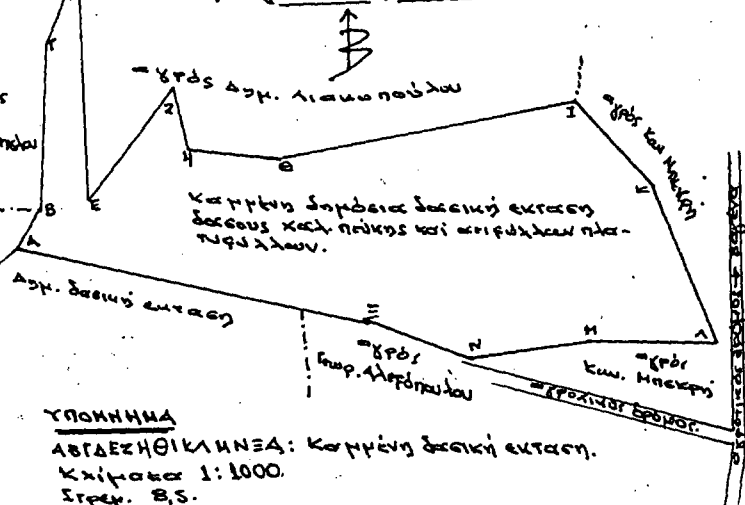 Β
αγρός Δημ. Λιακοπούλου
αγρός Κων. Μπεκρή
Γ
Ζ
Ι
Η
Θ
Κ
Β
Ε
Α
Καμμένη δημόσια δασική έκταση
δάσους χαλ. πεύκης καί αειφύλλων πλα-
τυφύλλων.
Δημ. δασική έκταση
Ξ
Ν
Μ
Λ
αγρός
Γεωρ. Αλεξόπουλου
αγρός
Κων. Μπεκρή
αγροτικός δρόμος.
αγροτικός δρόμος
ΥΠΟΜΝΗΜΑ
ΑΒΓΔΕΖΗΘΙΚΛΜΝΞΑ: Καμμένη δασική έκταση.
Κλίμακα 1:1000.
Στρεμ. 8,5.